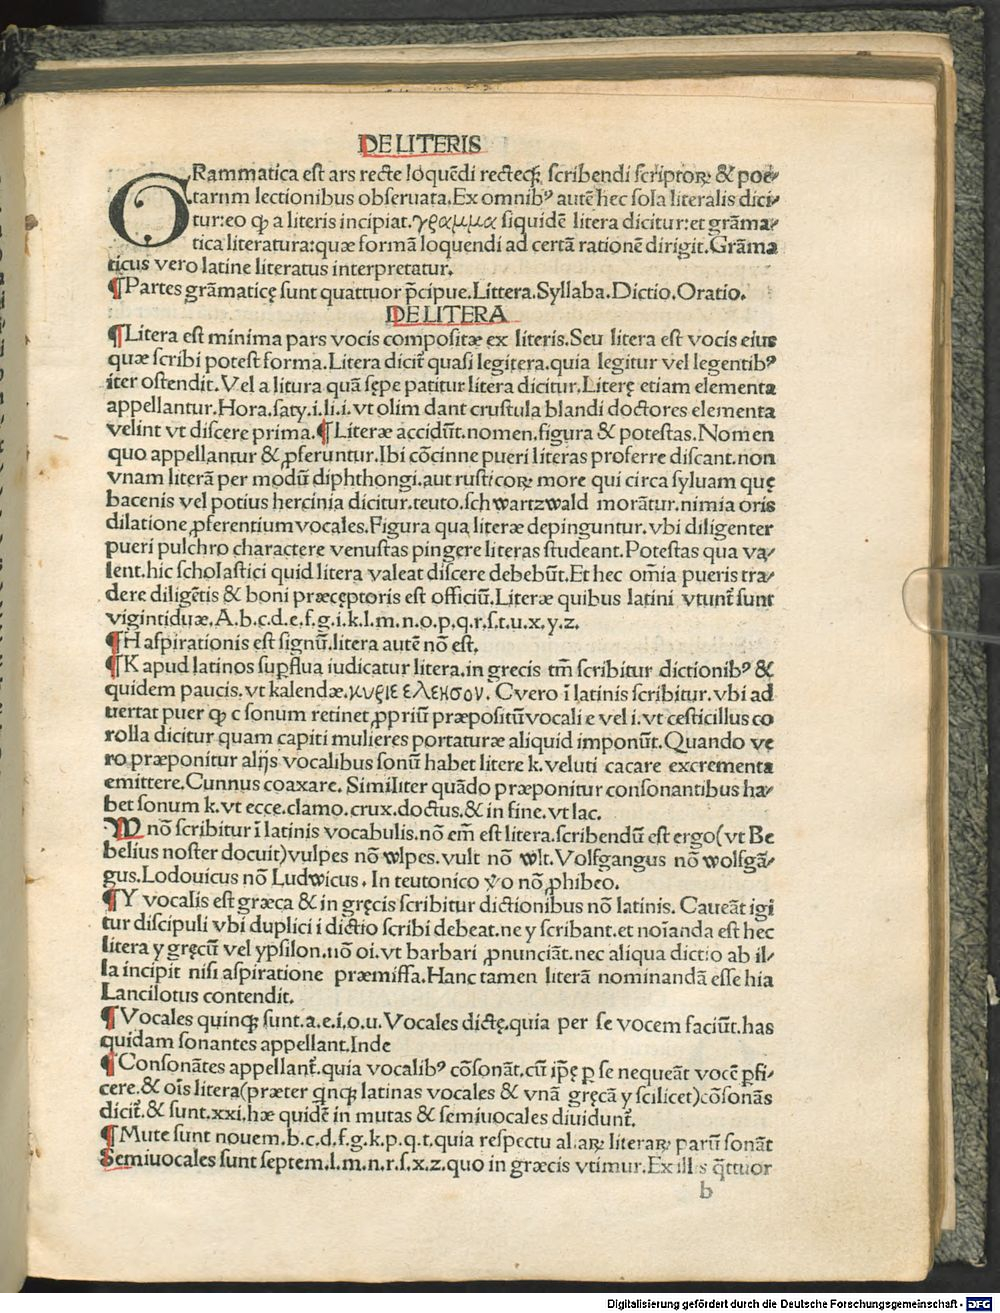 DE LITERIS
GRammatica est ars recte loquēdi recteqꝫ scribendi scriptoꝝ & poe⸗
tarnm lectionibus obseruata. Ex omnibꝰ autē hec sola literalis dici⸗
tur: eo ꝙ a literis incipiat. γραμμα siquidē litera dicitur: et grāma⸗
tica literatura: quæ formā loquendi ad certā rationē dirigit. Grāma
ticus vero latine literatus interpretatur.
¶ Partes grāmaticę sunt quattuor p̄cipue. Littera. Syllaba. Dictio. Oratio.
DE LITERA
¶ Litera est minima pars vocis compositæ ex literis. Seu litera est vocis eius
quæ scribi potest forma. Litera dicit᷑ quasi legitera. quia legitur vel legentibꝰ
iter ostendit. Vel a litura quā sępe patitur litera dicitur. Literę etiam elementa
appellantur. Hora. saty. i. li. i. vt olim dant crustula blandi doctores elementa
velint vt discere prima. ¶ Literæ accidūt. nomen. figura & potestas. Nomen
quo appellantur & ꝓferuntur. Ibi cōcinne pueri literas proferre discant. non
vnam literā per modū diphthongi. aut rusticoꝝ more qui circa syluam quę
bacenis vel potius hercinia dicitur. teuto. schwartzwald morātur. nimia oris
dilatione ꝓferentium vocales. Figura qua literæ depinguntur. vbi diligenter
pueri pulchro charactere venustas pingere literas studeant. Potestas qua va⸗
lent. hic scholastici quid litera valeat discere debebūt. Et hec om̄ia pueris tra⸗
dere diligētis & boni præceptoris est officiū. Literæ quibus latini vtunt᷑ sunt
vigintiduæ. A. b. c. d. e. f. g. i. k. l. m. n. o. p. q. r. s. t. u. x. y. z.
¶ H aspirationis est signū. litera autē nō est.
¶ K apud latinos suꝑflua iudicatur litera. in grecis tm̄ scribitur dictionibꝰ &
quidem paucis. vt kalendæ. κυριε ελεησον. C vero ī latinis scribitur. vbi ad
uertat puer ꝙ c sonum retinet ꝓpriū præpositū vocali e vel i. vt cesticillus co
rolla dicitur quam capiti mulieres portaturæ aliquid imponūt. Quando ve
ro præponitur alijs vocalibus sonū habet litere k. veluti cacare excrementa
emittere. Cunnus coaxare. Similiter quādo præponitur consonantibus ha⸗
bet sonum k. vt ecce. clamo. crux. doctus. & in fine. vt lac.
W nō scribitur ī latinis vocabulis. nō em̄ est litera. scribendū est ergo (vt Be
belius noster docuit) vulpes nō wlpes. vult nō wlt. Volfgangus nō wolfgā⸗
gus. Lodouicus nō Ludwicus. In teutonico v̆o nō ꝓhibeo.
¶ Y vocalis est græca & in gręcis scribitur dictionibus nō latinis. Caueāt igi
tur discipuli vbi duplici i dictio scribi debeat. ne y scribant. et noīanda est hec
litera y gręcū vel ypsilon. nō oi. vt barbari ꝓnunciāt. nec aliqua dictio ab il⸗
la incipit nisi aspiratione præmissa. Hanc tamen literā nominandā esse hia
Lancilotus contendit.
¶ Vocales quinqꝫ sunt. a. e. i. o. u. Vocales dictę. quia per se vocem faciūt. has
quidam sonantes appellant. Inde
¶ Consonātes appellant᷑. quia vocalibꝰ cōsonāt. cū ip̄ę ꝑ se nequeāt vocē ꝑfi⸗
cere. & oīs litera (præter q̇nqꝫ latinas vocales & vnā gręcā y scilicet) cōsonās
dicit᷑. & sunt. xxi. hæ quidē in mutas & semiuocales diuidunt᷑.
¶ Mute sunt nouem. b. c. d. f. g. k. p. q. t. quia respectu aliaꝝ literaꝝ parū sonāt
Semiuocales sunt septem. l. m. n. r. s. x. z. quo in græcis vtimur. Ex illis q̄ttuor
b
Digitalisierung gefördert durch die Deutsche Forschungsgemeinschaft - DFG